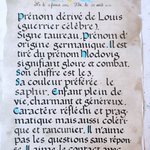 Prénom dérivé de Louis
(guerrier célèbre).
Signe taureau. Prénom d'
origine germanique. Il est
tiré du prénom Hlodovig
signifiant gloire et combat.
Son chiffre est le 3.
Sa couleur préférée : le
saphir. Enfant plein de
vie, charmant et généreux.
Caractère réfléchi et prag-
matique mais aussi coléri-
que et rancunier. Il n'aime
pas les questions sans répon-
ses. Il aime le contact avec